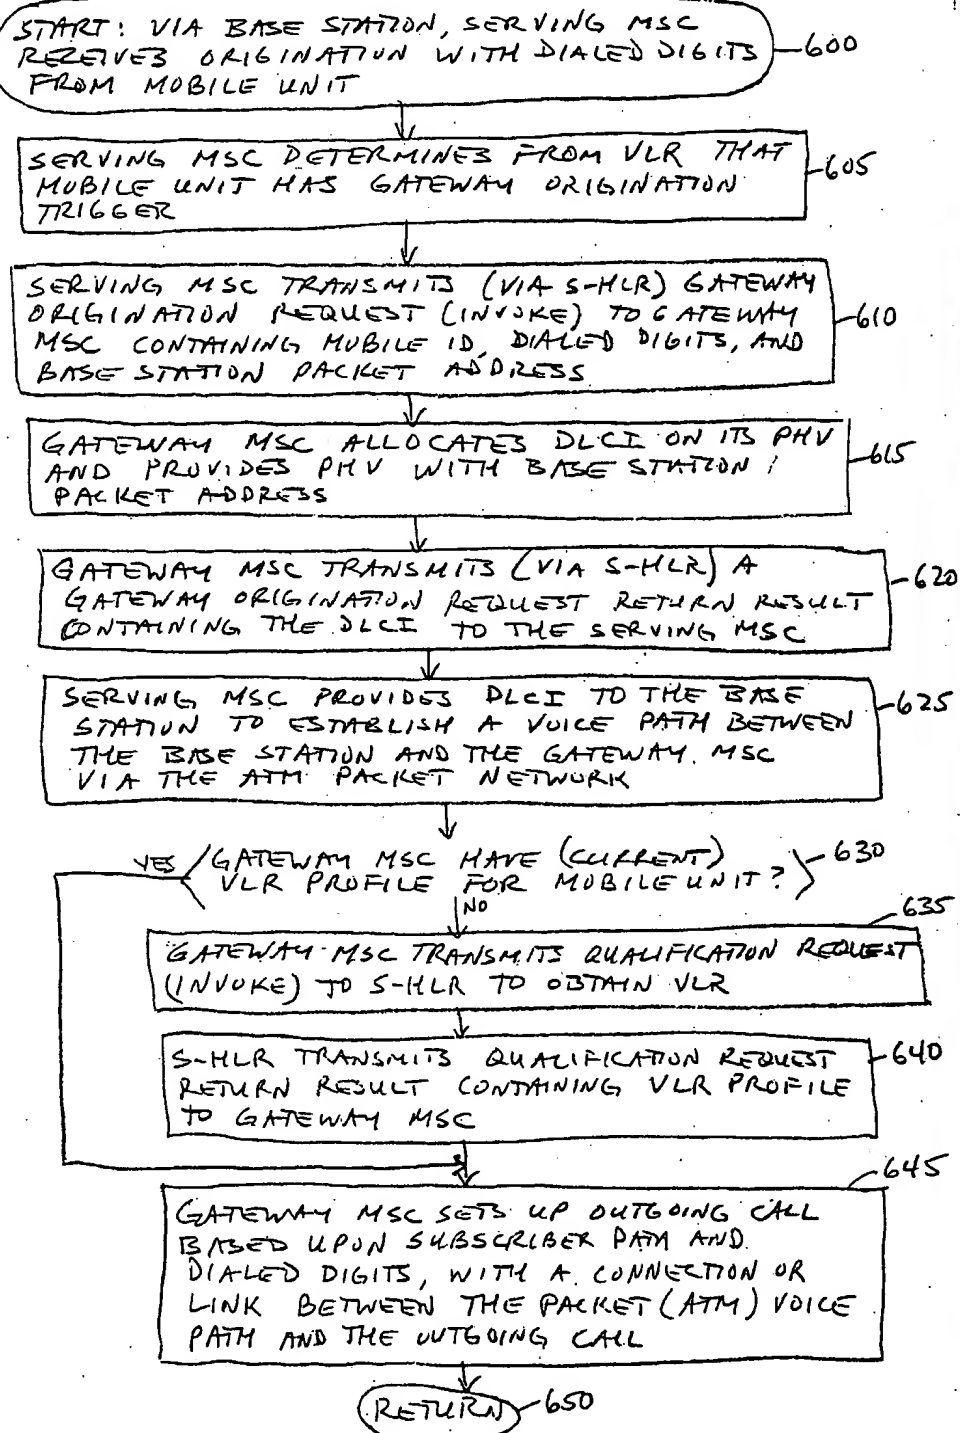 START: VIA BASE STATION, SERVING MSC
RECEIVES ORIGINATION WITH DIALED DIGITS
FROM MOBILE UNIT
600
SERVING MSC DETERMINES FROM VLR THAT
MOBILE UNIT HAS GATEWAY ORIGINATION
TRIGGER
605
SERVING MSC TRANSMITS (VIA S-HLR) GATEWAY
ORIGINATION REQUEST (INVOKE) TO GATEWAY
MSC CONTAINING MOBILE ID, DIALED DIGITS, AND
BASE STATION PACKET ADDRESS
610
GATEWAY MSC ALLOCATES DLCI ON ITS PHV
AND PROVIDES PHV WITH BASE STATION
PACKET ADDRESS
615
GATEWAY MSC TRANSMITS (VIA S-HLR) A
GATEWAY ORIGINATION REQUEST RETURN RESULT
CONTAINING THE DLCI TO THE SERVING MSC
620
SERVING MSC PROVIDES DLCI TO THE BASE
STATION TO ESTABLISH A VOICE PATH BETWEEN
THE BASE STATION AND THE GATEWAY MSC
VIA THE ATM PACKET NETWORK
625
YES
GATEWAY MSC HAVE (CURRENT)
VLR PROFILE FOR MOBILE UNIT?
630
NO
635
GATEWAY MSC TRANSMITS QUALIFICATION REQUEST
(INVOKE) TO S-HLR TO OBTAIN VLR
S-HLR TRANSMITS QUALIFICATION REQUEST
RETURN RESULT CONTAINING VLR PROFILE
TO GATEWAY MSC
640
645
GATEWAY MSC SETS UP OUTGOING CALL
BASED UPON SUBSCRIBER PATH AND
DIALED DIGITS, WITH A CONNECTION OR
LINK BETWEEN THE PACKET (ATM) VOICE
PATH AND THE OUTGOING CALL
RETURN
650